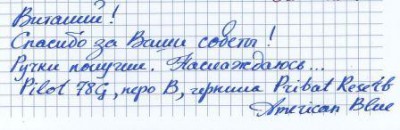 Виталий!
Спасибо за Ваши советы!
Ручки получил. Наслаждаюсь...
Pilot 78G, перо В, чернила Privat Reserve
American Blue